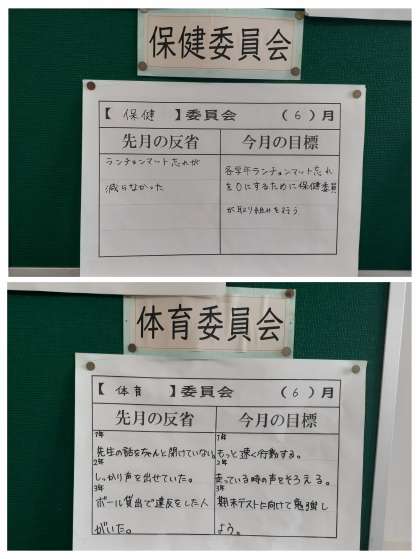 保健委員会
【 保健 】委員会 （ 6 ）月
先月の反省 今月の目標
ランチョンマット忘れが
減らなかった
各学年ランチョンマット忘れ
を0にするために保健委員
が取り組みを行う
体育委員会
【 体育 】委員会 （ 6 ）月
先月の反省 今月の目標
1年
先生の話をちゃんと聞けていない。
2年
しっかり声を出せていた。
3年
ボール貸出で違反をした人
がいた。
1年
もっと速く行動する。
2年
走っている時の声をそろえる。
3年
期末テストに向けて勉強し
よう。